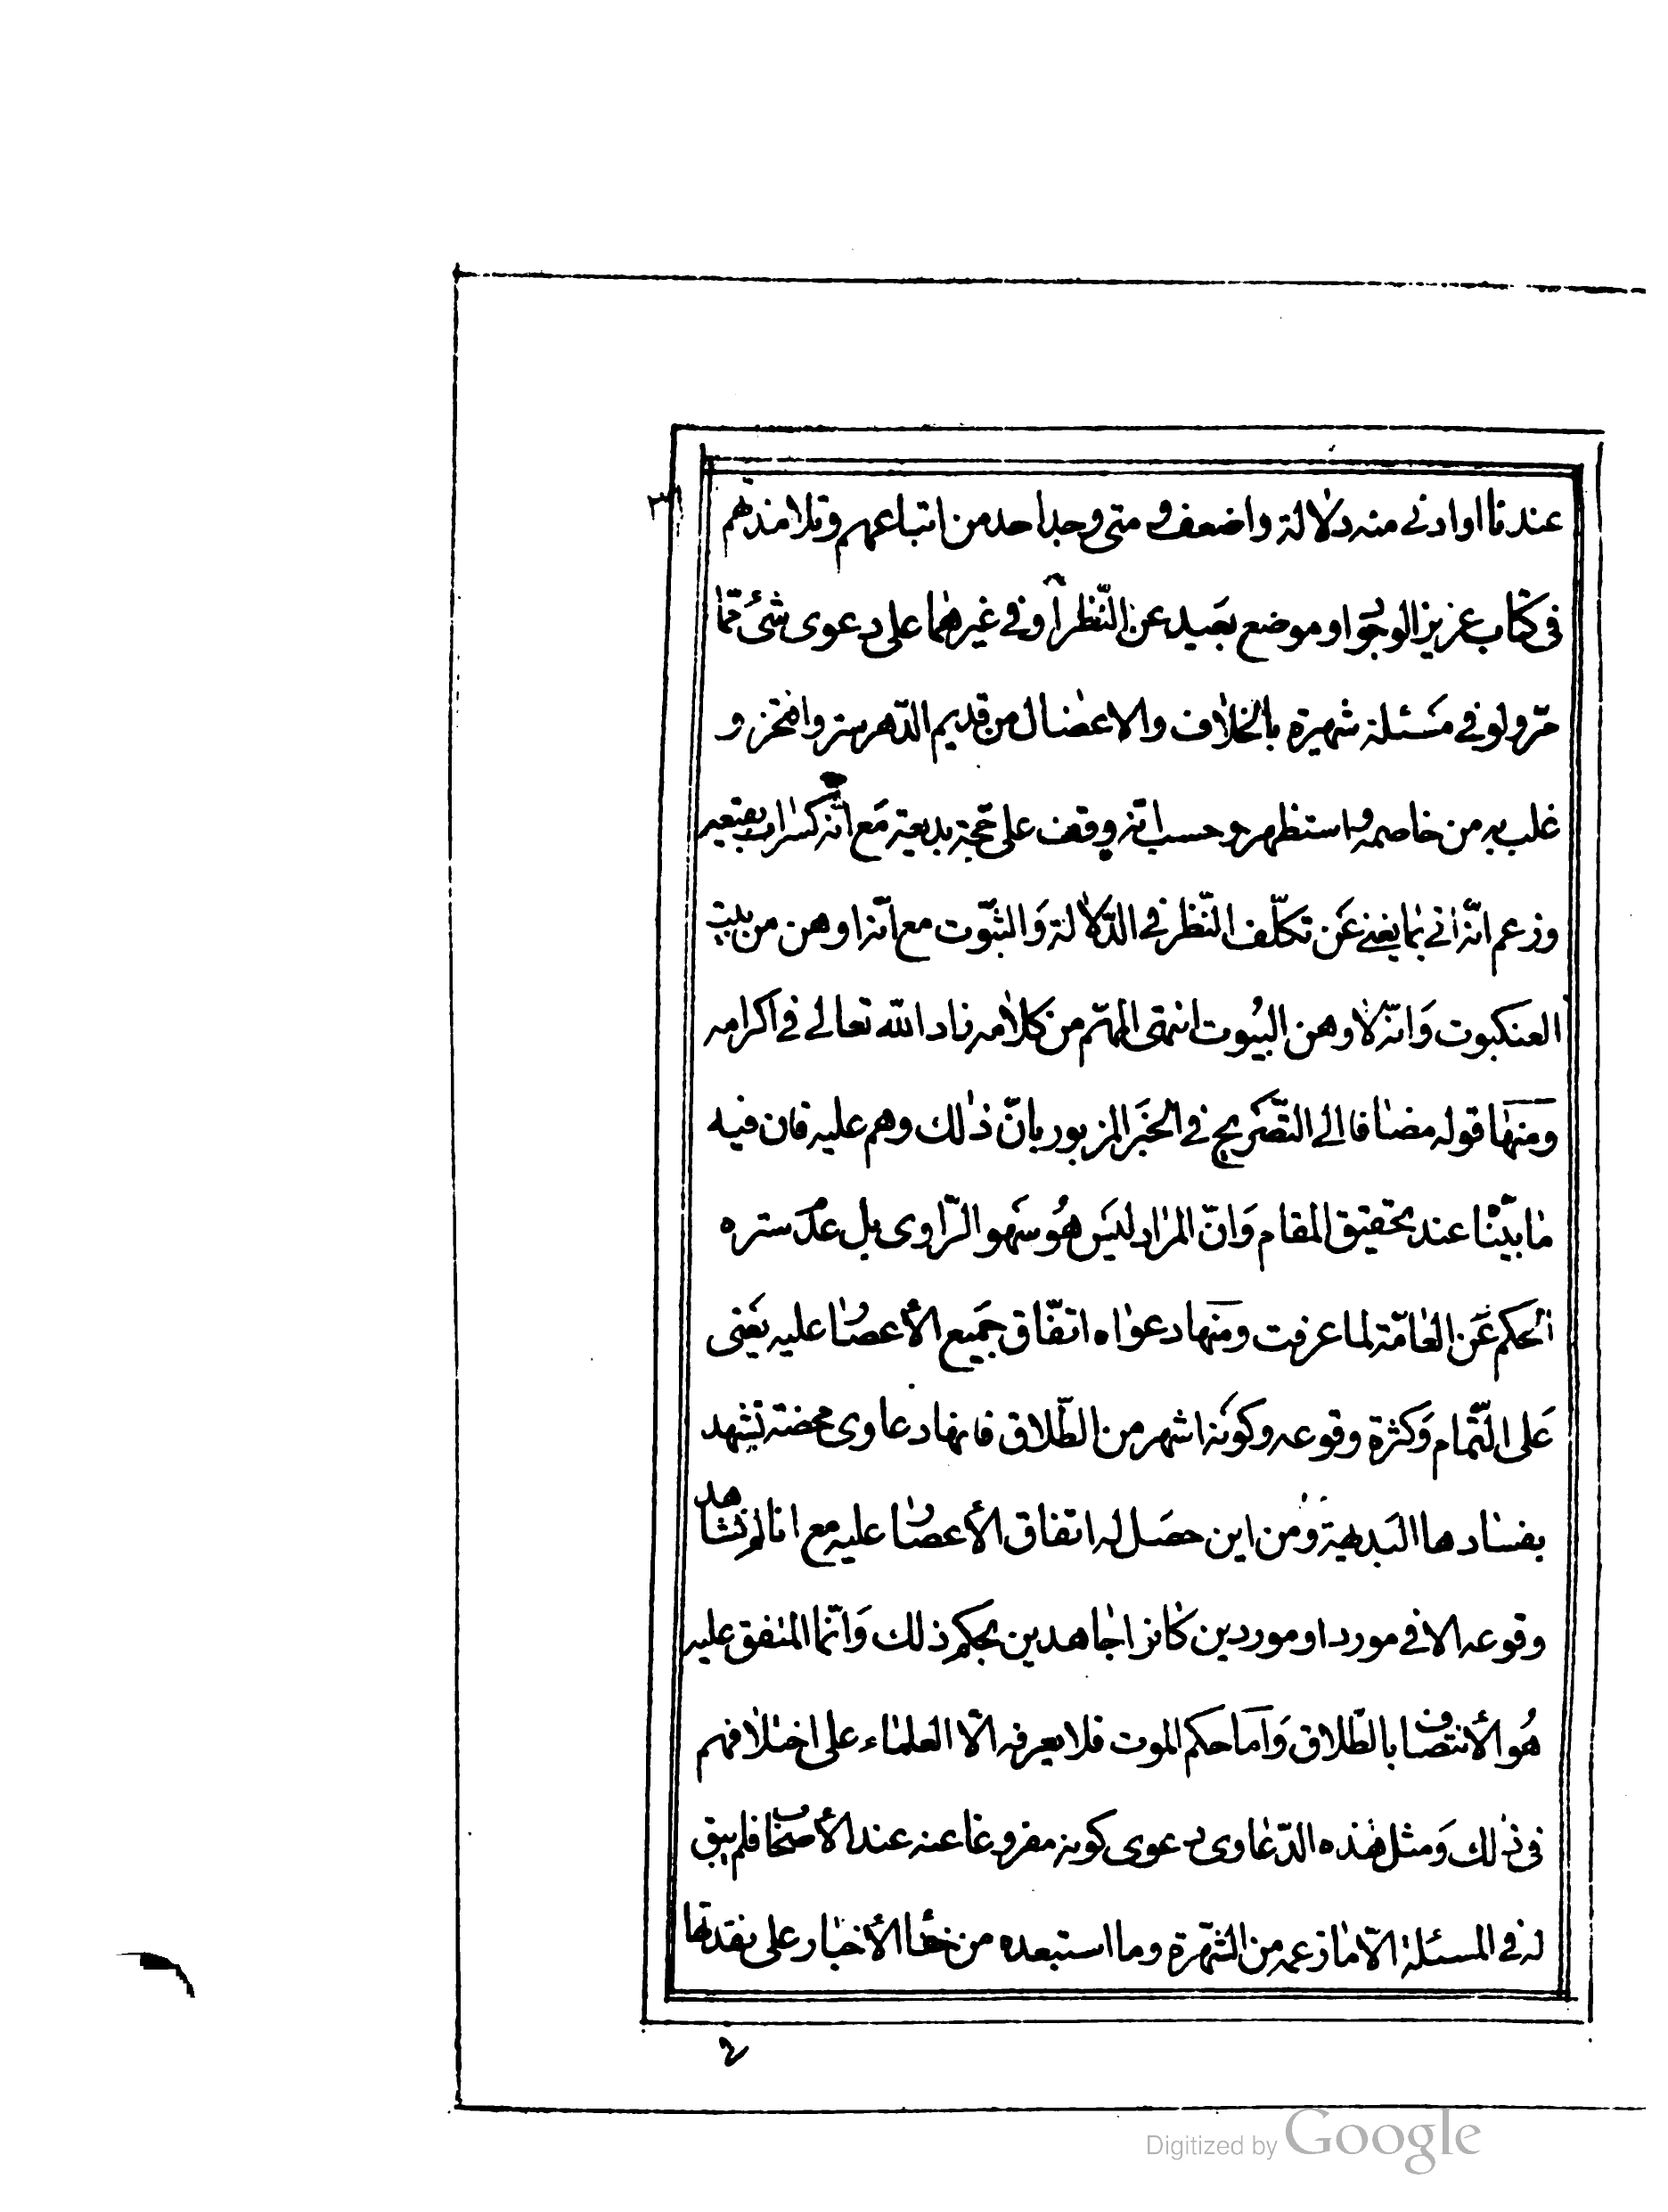 ٣١
عندنا او ادنى منه دلالة واضعف و متى وجد احد من اتباعهم وتلامذتهم
فى كتاب عزيز الوجود او موضع بعيد عن النّظر أو فى غيرهما على دعوى شئ ممّا
مرّ ولو فى مسئلة شهيرة بالخلاف والاعضال من قديم الدّهر سرّ وافتخر و
غلب به من خاصمه واستظهر وحسب انّه وقف على حجّة بديعة مع انّه كسراب بقيعة
وزعم انّه اتى بما يغنى عن تكلّف النّظر فى الدّلالة والثّبوت مع انّه اوهن من بيت
العنكبوت وانّه لاوهن البيوت انتهى المهمّ من كلامه زاد الله تعالى فى اكرامه
ومنها قوله مضافا الى التّصريح فى الخبر المزبور بانّ ذلك وهم عليه فان فيه
ما بيّنّا عند تحقيق المقام وانّ المراد ليس هو سهو الرّاوى بل عدم ستره
الحكم عن العامّة لما عرفت ومنها دعواه اتفّاق جميع الأعصار عليه يعنى
على التّمام وكثرة وقوعه وكونه اشهر من الطّلاق فانها دعاوى محضة تشهد
بفسادها البديهية ومن اين حصل له اتفاق الأعصار عليه مع انا لم نشاهد
وقوعه الا فى مورد او موردين كانزا جاهدين بحكم ذلك وانّما المتفق عليه
هو الأنتصاف بالطّلاق وامّا حكم الموت فلا يعرفه الّا العلماء على اختلافهم
فى ذلك ومثل هذه الدّعاوى دعوى كونه مفروغا عنه عند الأصحاب فلم يبق
له فى المسئلة الّا ما زعمه من الشّهرة وما استبعده من خفأ الأخبار على نقدتها
Digitized by Google